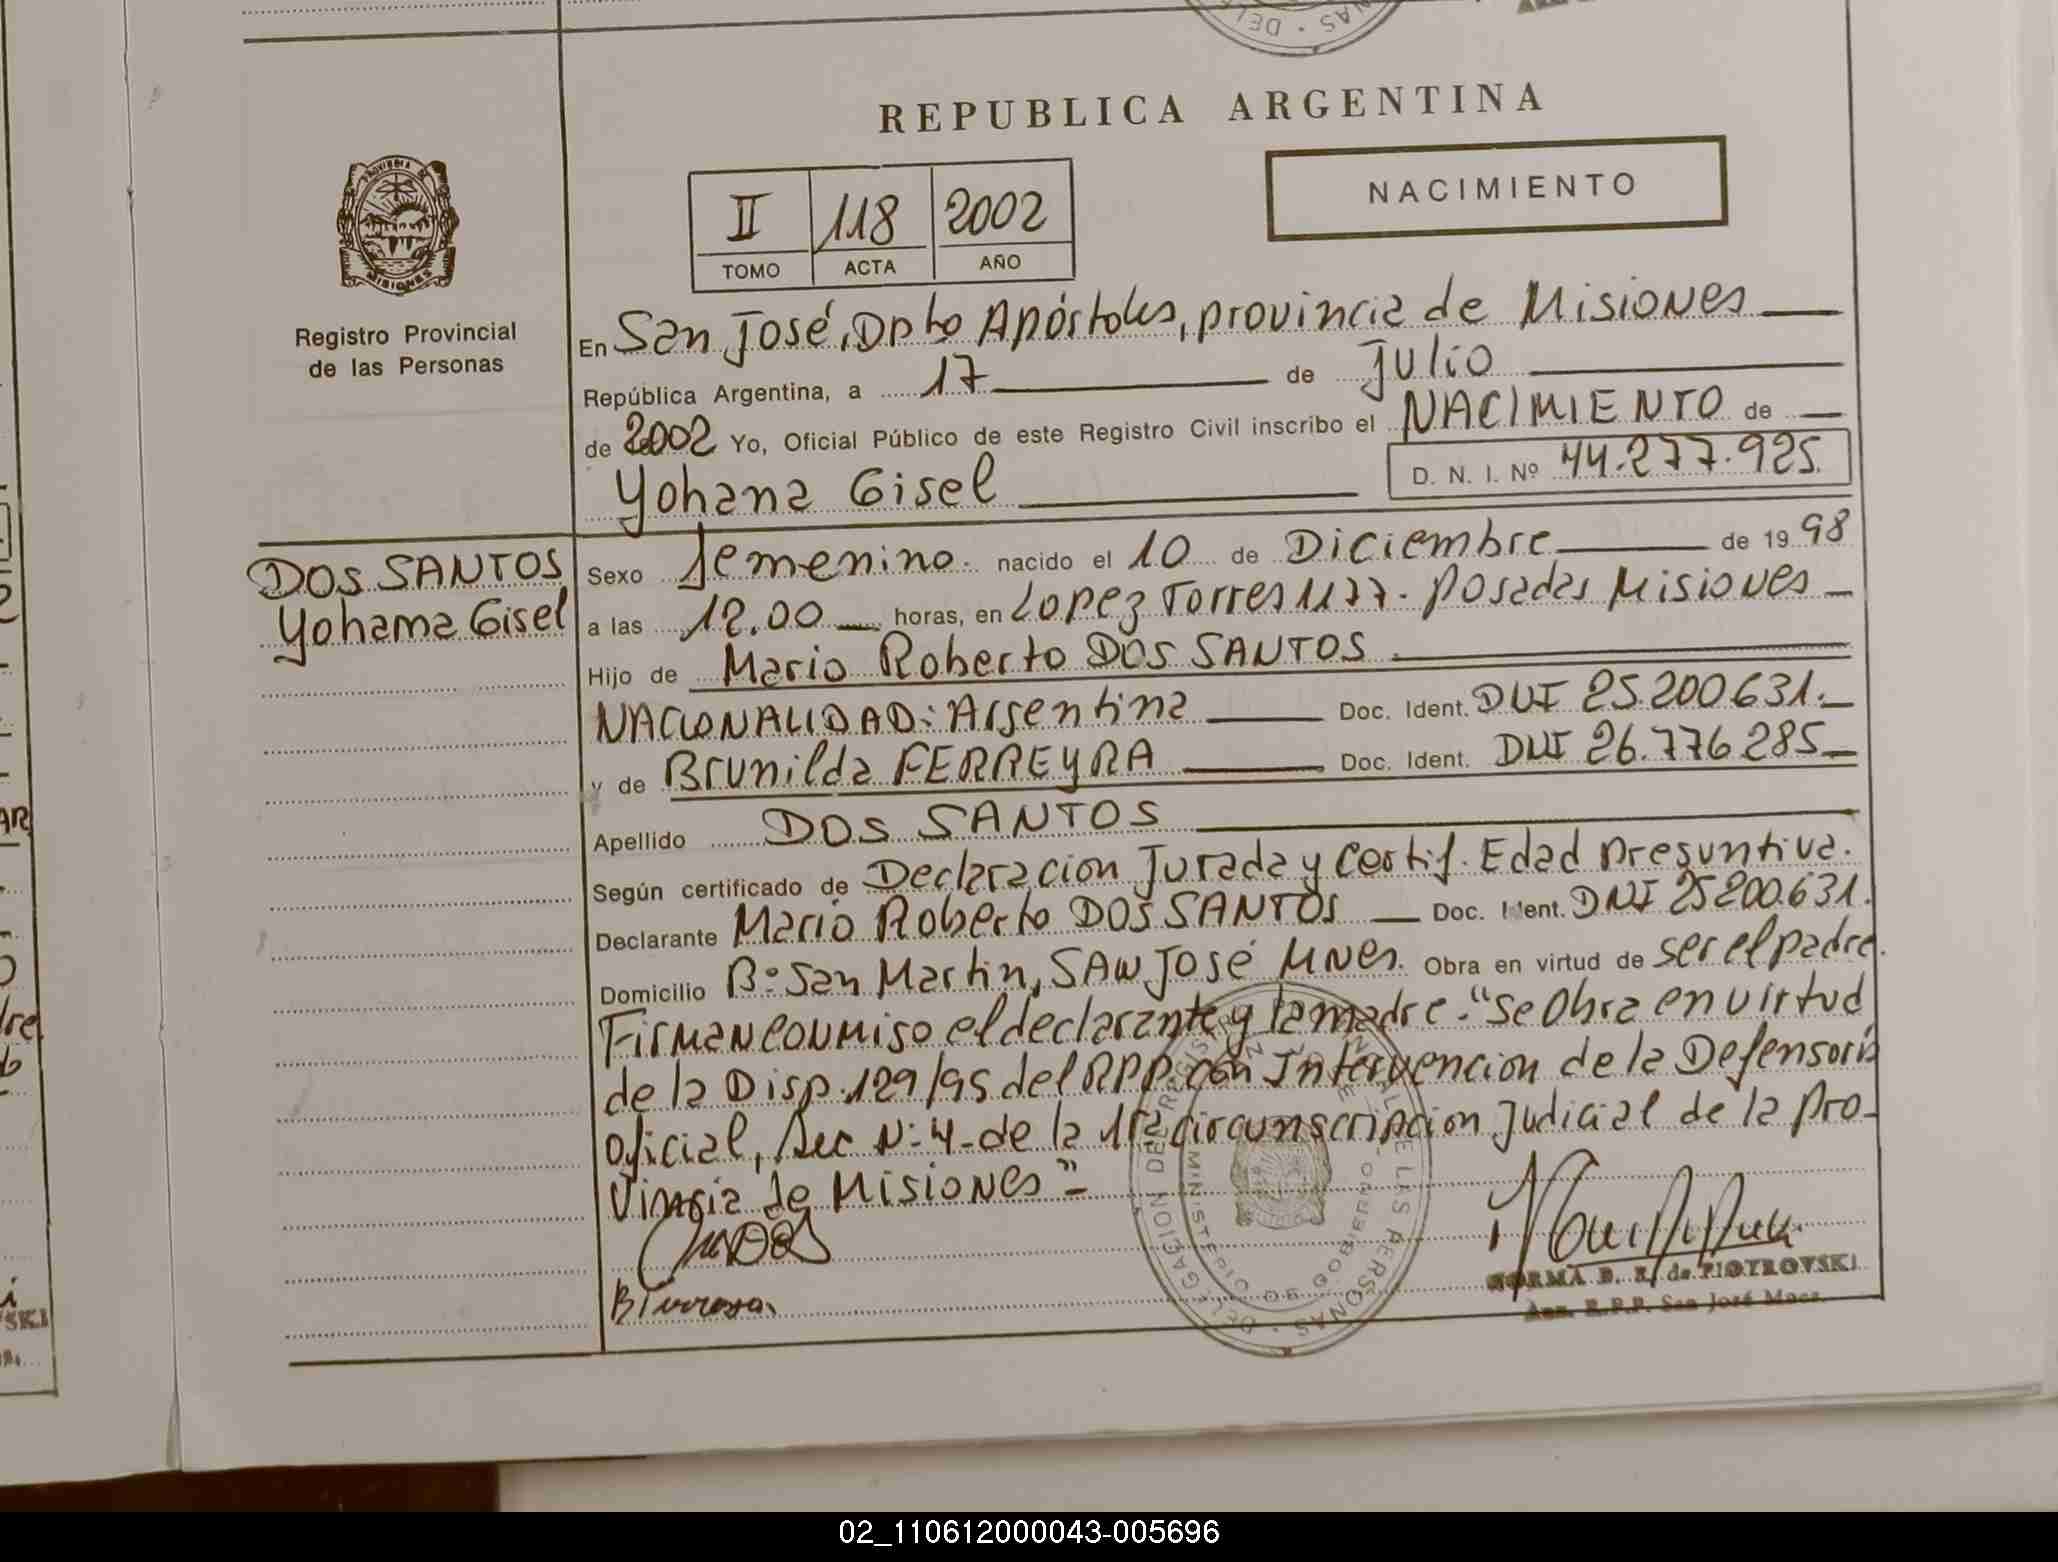 REPUBLICA ARGENTINA
NACIMIENTO
II 118 2002
TOMO ACTA AÑO
PROVINCIA DE MISIONES
Registro Provincial
de las Personas
En San José, Dpto Apóstoles, provincia de Misiones
República Argentina, a 17 de Julio
de 2002 Yo, Oficial Público de este Registro Civil inscribo el NACIMIENTO de
Yohana Gisel D. N. I. Nº 44.277.925.
DOS SANTOS
Yohana Gisel
Sexo femenino. nacido el 10 de Diciembre de 19 98
a las 12.00 horas, en Lopez Torres 1177. Posadas Misiones
Hijo de Mario Roberto DOS SANTOS
NACIONALIDAD: Argentina Doc. Ident. DNI 25.200.631.
y de Brunilda FERREYRA Doc. Ident. DNI 26.776.285
Apellido DOS SANTOS
Según certificado de Declaracion Jurada y Certif. Edad Presuntiva.
Declarante Mario Roberto DOS SANTOS Doc. Ident. DNI 25200.631.
Domicilio Bº San Martin, SAN JOSé MNes. Obra en virtud de ser el padre.
Firman conmiso el declarante y la madre. "Se Obra en virtud
de la Disp. 129/95 del RPP con Intervencion de la Defensoria
Oficial, Sec Nº 4 - de la 1ra circunscripcion Judicial de la Pro-
vincia de Misiones"-
NORMA B. de PIOTROVSKI
R.P.P. San José Mnes.
02_110612000043-005696